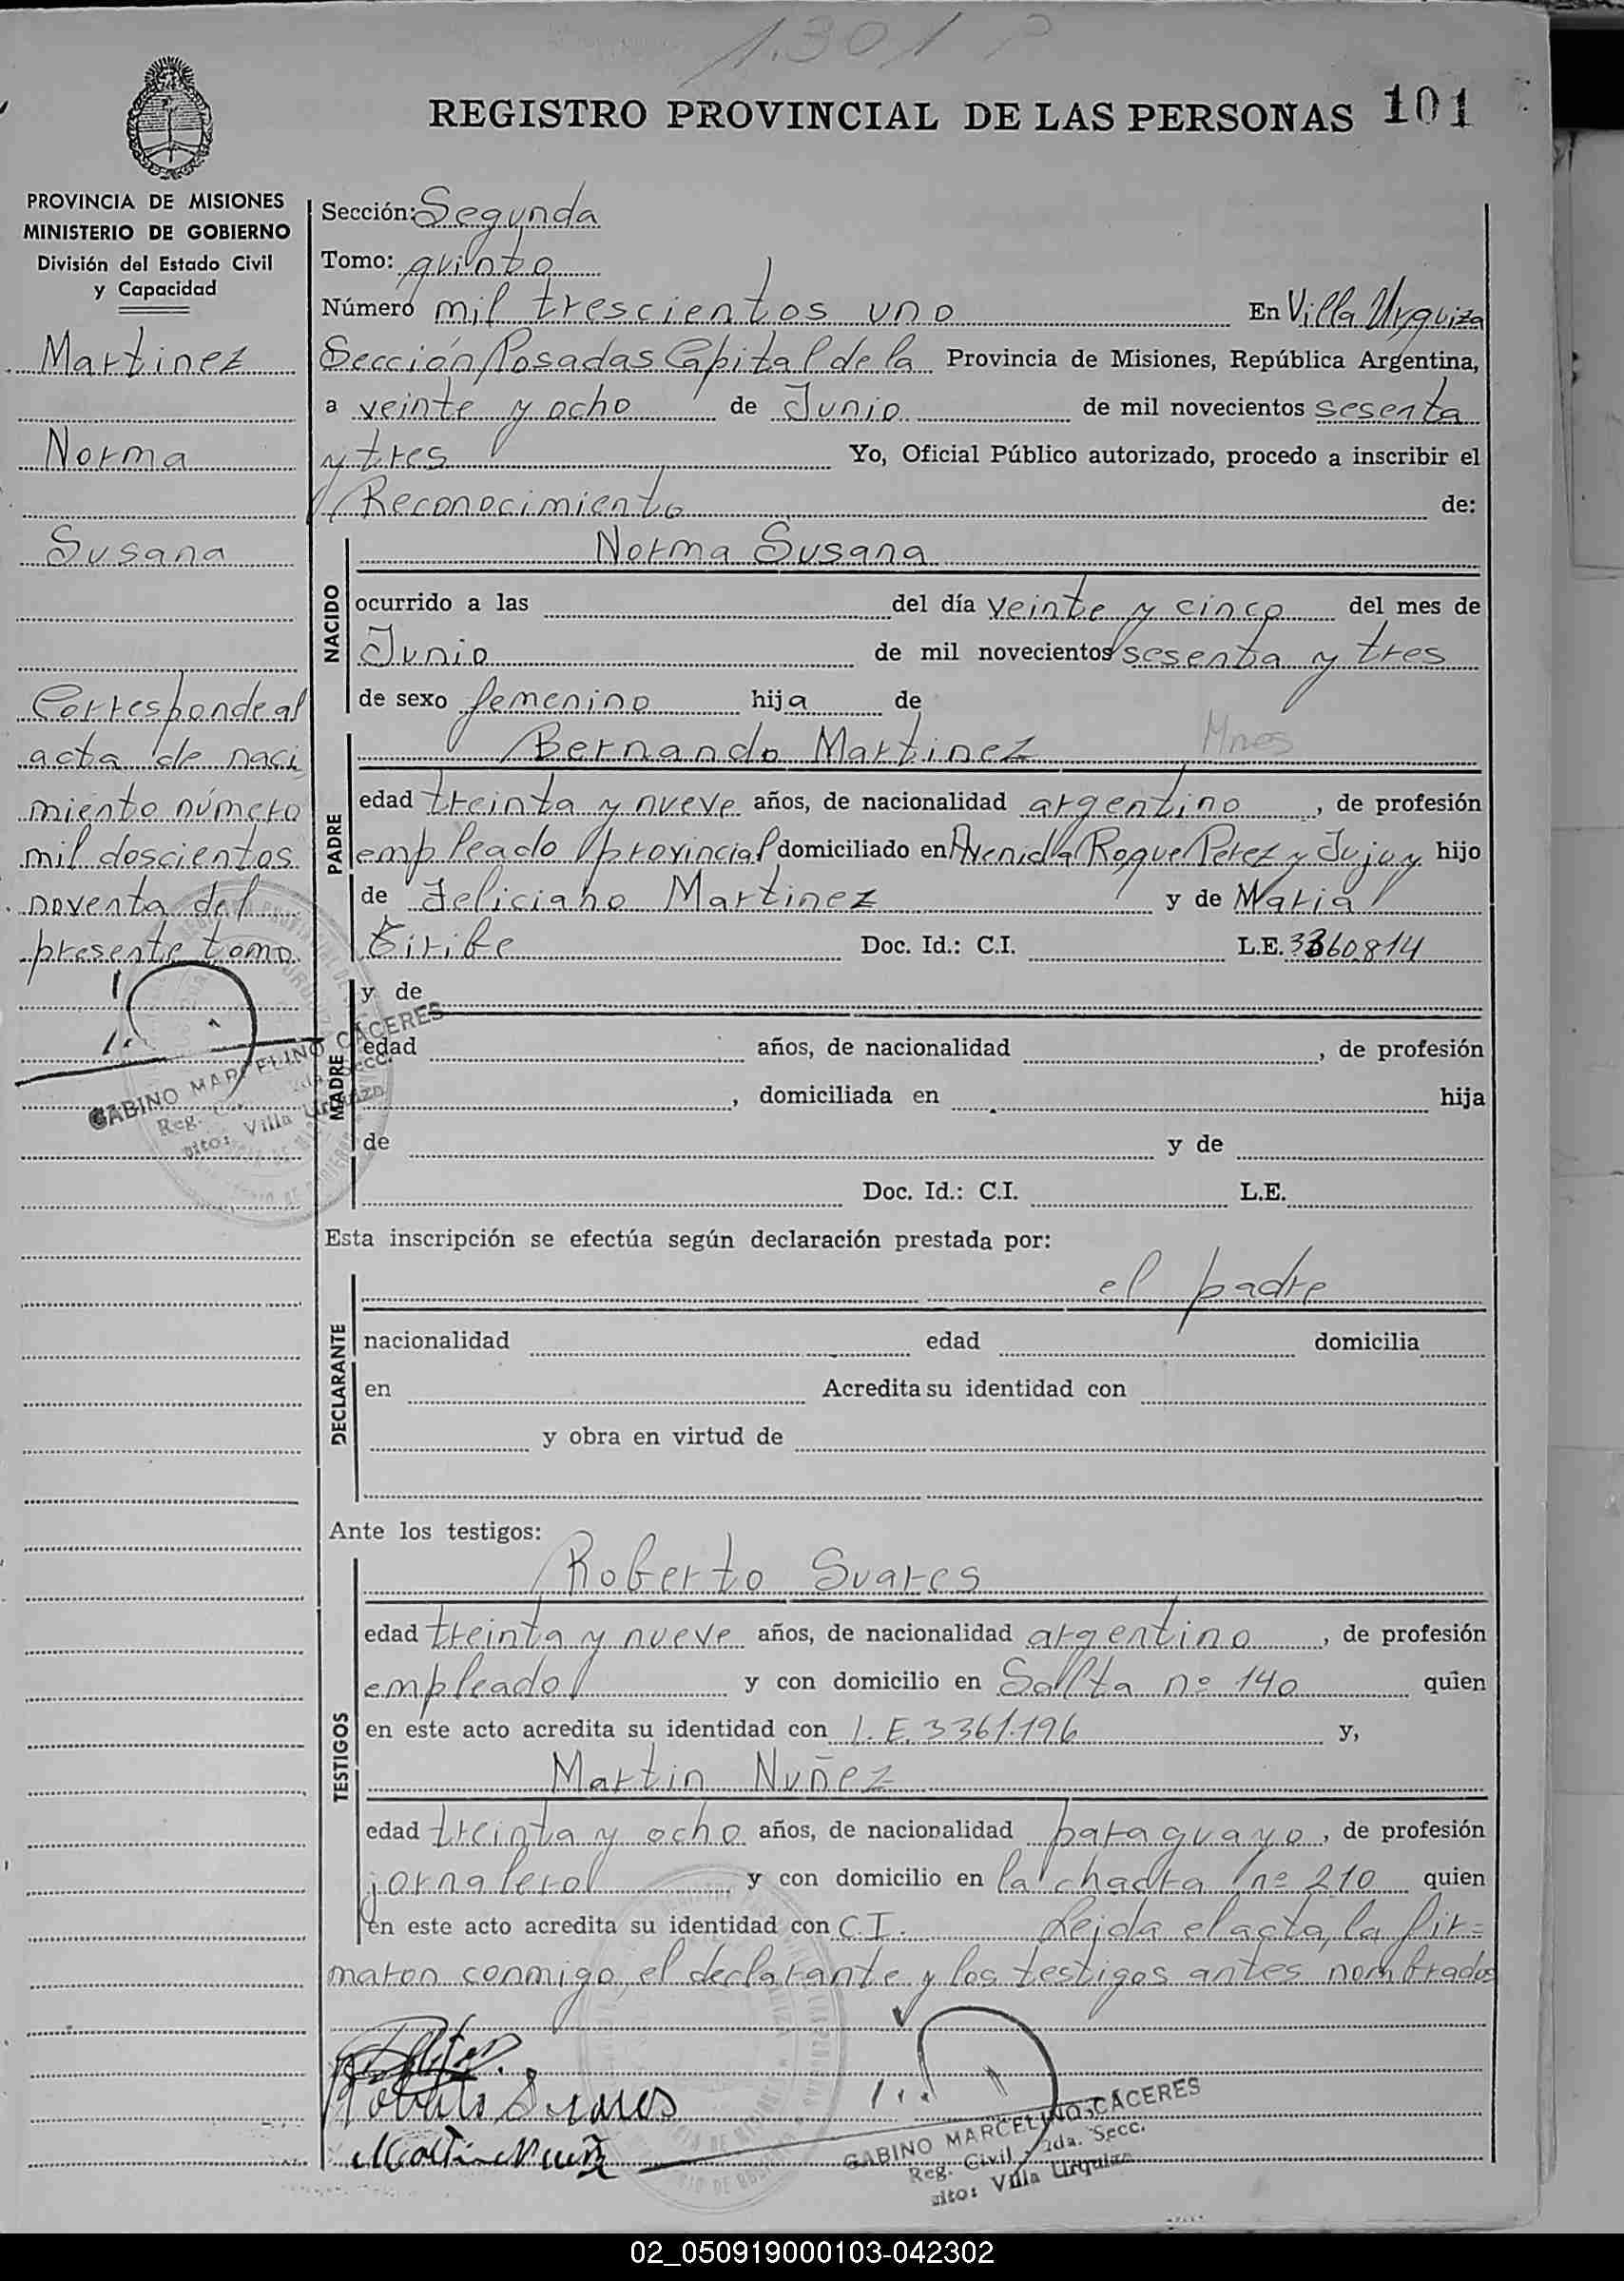 1.301
REGISTRO PROVINCIAL DE LAS PERSONAS 101
PROVINCIA DE MISIONES
MINISTERIO DE GOBIERNO
División del Estado Civil
y Capacidad
Martinez
Norma
Susana
Corresponde al
acta de naci
miento número
mil doscientos
noventa del
presente tomo.
GABINO MARCELINO CACERES
Reg.
sito: Villa Urquiza
Sección: Segunda
Tomo: quinto
Número mil trescientos uno En Villa Urquiza
Sección Posadas Capital de la Provincia de Misiones, República Argentina,
a veinte y ocho de Junio de mil novecientos sesenta
y tres Yo, Oficial Público autorizado, procedo a inscribir el
Reconocimiento de:
NACIDO
Norma Susana
ocurrido a las del día veinte y cinco del mes de
Junio de mil novecientos sesenta y tres
de sexo femenino hija de
PADRE
Bernando Martinez Mnes
edad treinta y nueve años, de nacionalidad argentino, de profesión
empleado provincial domiciliado en Avenida Roque Perez y Jujuy hijo
de Feliciano Martinez y de Maria
Doc. Id.: C.I. L.E. 3360814
MADRE
y de
edad años, de nacionalidad , de profesión
, domiciliada en hija
de y de
Doc. Id.: C.I. L.E.
Esta inscripción se efectúa según declaración prestada por:
DECLARANTE
el padre
nacionalidad edad domicilia
en Acredita su identidad con
y obra en virtud de
Ante los testigos:
TESTIGOS
Roberto Suares
edad treinta y nueve años, de nacionalidad argentino, de profesión
empleado y con domicilio en Salta nº 140 quien
en este acto acredita su identidad con L.E. 3361.196 y,
Martin Nuñez
edad treinta y ocho años, de nacionalidad paraguayo, de profesión
jornalero y con domicilio en la chacra nº 210 quien
en este acto acredita su identidad con C.I. Leida el acta, la fir=
maron conmigo, el declarante y los testigos antes nombrados
Roberto Suares
Martin Nuñez
GABINO MARCELINO CACERES
Reg. Civil 2da. Secc.
sito: Villa Urquiza
02_050919000103-042302